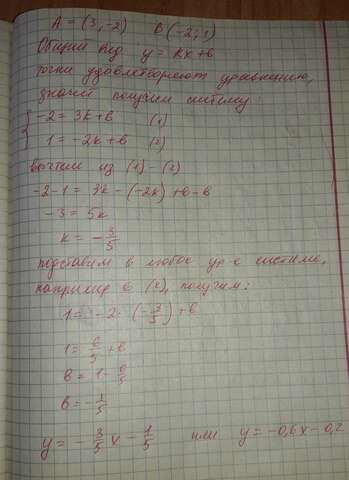 A = (3, -2) B (-2; 1)
Общий вид y = kx + b
точки удовлетворяют уравнению,
значит получим систему:
{ -2 = 3k + b (1)
1 = -2k + b (2)
вычтем из (1) - (2)
-2 - 1 = 3k - (-2k) + b - b
-3 = 5k
k = - 3/5
подставим в любое ур-е системы,
например в (2), получим:
1 = -2 · (- 3/5) + b
1 = 6/5 + b
b = 1 - 6/5
b = - 1/5
y = - 3/5 x - 1/5 или y = -0,6x - 0,2